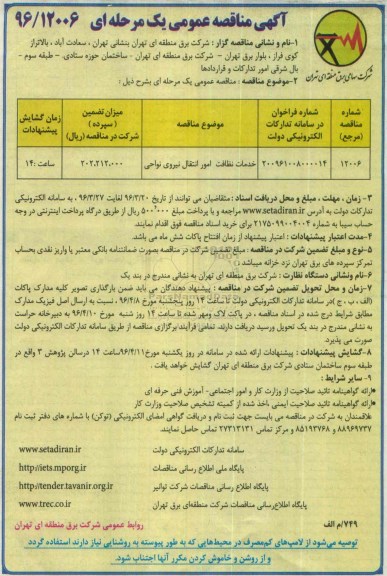 آگهی مناقصه عمومی یک مرحله ای ۹۶/۱۲۰۰۶
شرکت سهامی برق منطقه ای تهران
۱-نام و نشانی مناقصه گزار : شرکت برق منطقه ای تهران بنشانی تهران ، سعادت آباد ، بالاتراز
کوی فراز ، بلوار برق تهران – شرکت برق منطقه ای تهران – ساختمان حوزه ستادی – طبقه سوم –
بال شرقی امور تدارکات و قراردادها
۲-موضوع مناقصه : مناقصه عمومی یک مرحله ای بشرح ذیل :
شماره مناقصه (مرجع) | شماره فراخوان در سامانه تدارکات الکترونیکی دولت | موضوع مناقصه | میزان تضمین (سپرده) شرکت در مناقصه (ریال) | زمان گشایش پیشنهادات
۱۲۰۰۶ | ۲۰۰۹۶۱۰۰۸۰۰۰۰۱۴ | خدمات نظافت امور انتقال نیروی نواحی | ۲۰۲,۲۱۲,۰۰۰ | ساعت ۱۴:
۳- زمان ، مهلت ، مبلغ و محل دریافت اسناد : متقاضیان می توانند از تاریخ ۹۶/۳/۲۰ لغایت ۹۶/۳/۲۷ ، به سامانه الکترونیکی
تدارکات دولت به آدرس www.setadiran.ir مراجعه و با پرداخت مبلغ ۵۰۰٬۰۰۰ ریال از طریق درگاه پرداخت اینترنتی در وجه
حساب سیبا به شماره ۲۱۷۵۰۹۹۰۰۴۰۰۴ برای خرید اسناد مناقصه فوق اقدام نمایند.
۴-مدت اعتبار پیشنهادات : اعتبار پیشنهاد از زمان افتتاح پاکات شش ماه می باشد.
۵-نوع و مبلغ تضمین شرکت در مناقصه : مبلغ تضمین شرکت در مناقصه بصورت ضمانتنامه بانکی معتبر یا واریز نقدی بحساب
تمرکز سپرده های برق تهران نزد خزانه میباشد .
۶-نام ونشانی دستگاه نظارت : شرکت برق منطقه ای تهران به نشانی مندرج در بند یک
۷-زمان و محل تحویل تضمین شرکت در مناقصه : پیشنهاد دهندگان می باید ضمن بارگذاری تصویر کلیه مدارک پاکات
(الف ، ب ، ج )در سامانه تدارکات الکترونیکی دولت تا ساعت ۱۴ روز پنجشنبه مورخ ۹۶/۴/۸ ، نسبت به ارسال اصل فیزیک مدارک
مطابق شرایط درج شده در اسناد مناقصه ، در پاکت لاک ومهر شده تا ساعت ۱۴ روز شنبه مورخ ۹۶/۴/۱۰ به دبیرخانه حراست
به نشانی مندرج در بند یک تحویل ورسید دریافت دارند. تمامی فرآیند برگزاری مناقصه از طریق سامانه تدارکات الکترونیکی دولت
صورت می پذیرد
۸-گشایش پیشنهادات : پیشنهادات ارائه شده در سامانه در روز یکشنبه مورخ۹۶/۴/۱۱ساعت ۱۴ درسالن پژوهش ۳ واقع در
طبقه سوم ساختمان ستادی شرکت برق منطقه ای تهران گشایش خواهد یافت .
۹- سایر شرایط :
*ارائه گواهینامه تائید صلاحیت از وزارت کار و امور اجتماعی- آموزش فنی حرفه ای
*ارائه گواهینامه تائید صلاحیت ایمنی ،اخذ شده از کمیته تشخیص صلاحیت وزارت کار
علاقمندان به شرکت در مناقصه می بایست جهت ثبت نام و دریافت گواهی امضای الکترونیکی (توکن) با شماره های دفتر ثبت نام
۸۸۹۶۹۷۳۷ و ۸۵۱۹۳۷۶۸ و مرکز تماس ۲۷۳۱۲۱۳۱ تماس حاصل نمایند.
سامانه تدارکات الکترونیکی دولت www.setadiran.ir
پایگاه ملی اطلاع رسانی مناقصات http://iets.mporg.ir
پایگاه اطلاع رسانی مناقصات شرکت توانیر http://tender.tavanir.org.ir
پایگاه اطلاع‌رسانی مناقصات شرکت منطقه‌ای برق تهران www.trec.co.ir
۷۴۹/م الف
روابط عمومی شرکت برق منطقه ای تهران
توصیه می‌شود از لامپ‌های کم‌مصرف در محیط‌هایی که به طور پیوسته به روشنایی نیاز دارند استفاده گردد
و از روشن و خاموش کردن مکرر آنها اجتناب شود.